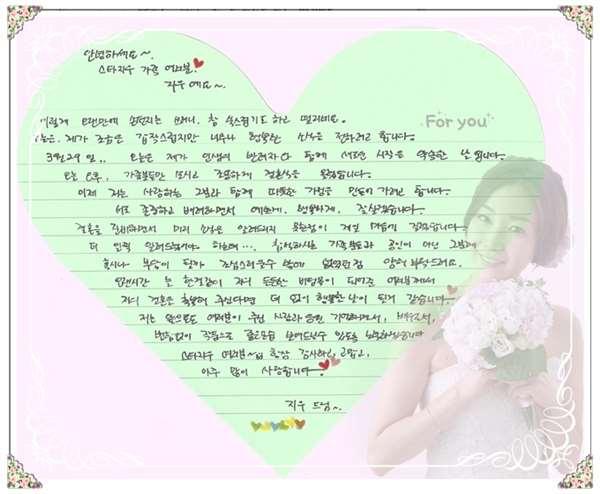 안녕하세요~.
스타지우 가족 여러분.
지우예요~.
이렇게 오랜만에 손편지를 쓰려니, 참 쑥스럽기도 하고 떨리네요.
For you
오늘은, 제가 조금은 갑작스럽지만 너무나 행복한 소식을 전하려고 합니다.
3월 29일.. 오늘은 제가 인생의 반려자와 함께 새로운 시작을 약속한 날입니다.
오늘 오후, 가족분들만 모시고 조용하게 결혼식을 올렸습니다.
이제 저는 사랑하는 그분과 함께 따뜻한 가정을 만들어 가려고 합니다.
서로 존중하고 배려하면서 예쁘게, 행복하게, 잘 살겠습니다.
결혼을 준비하면서 미리 소식을 알려드리지 못한 점이 제일 마음에 걸렸습니다.
더 일찍 알려드렸어야 하는데..., 참석하시는 가족분들과 공인이 아닌 그분께
혹시나 부담이 될까 조심스러울 수 밖에 없었던 점 양해 부탁드려요.
오랜시간 늘 한결같이 저의 든든한 버팀목이 되어준 여러분께서
저의 결혼을 축복해 주신다면 더 없이 행복한 날이 될거 같습니다.
저는 앞으로도 여러분이 주신 사랑과 응원 기억하면서,
변함없이 작품으로 좋은 모습 보여드릴 수 있도록 노력하겠습니다.
스타지우 여러분~ 항상 감사하고, 고맙고,
아주 많이 사랑합니다
지우 드림~.